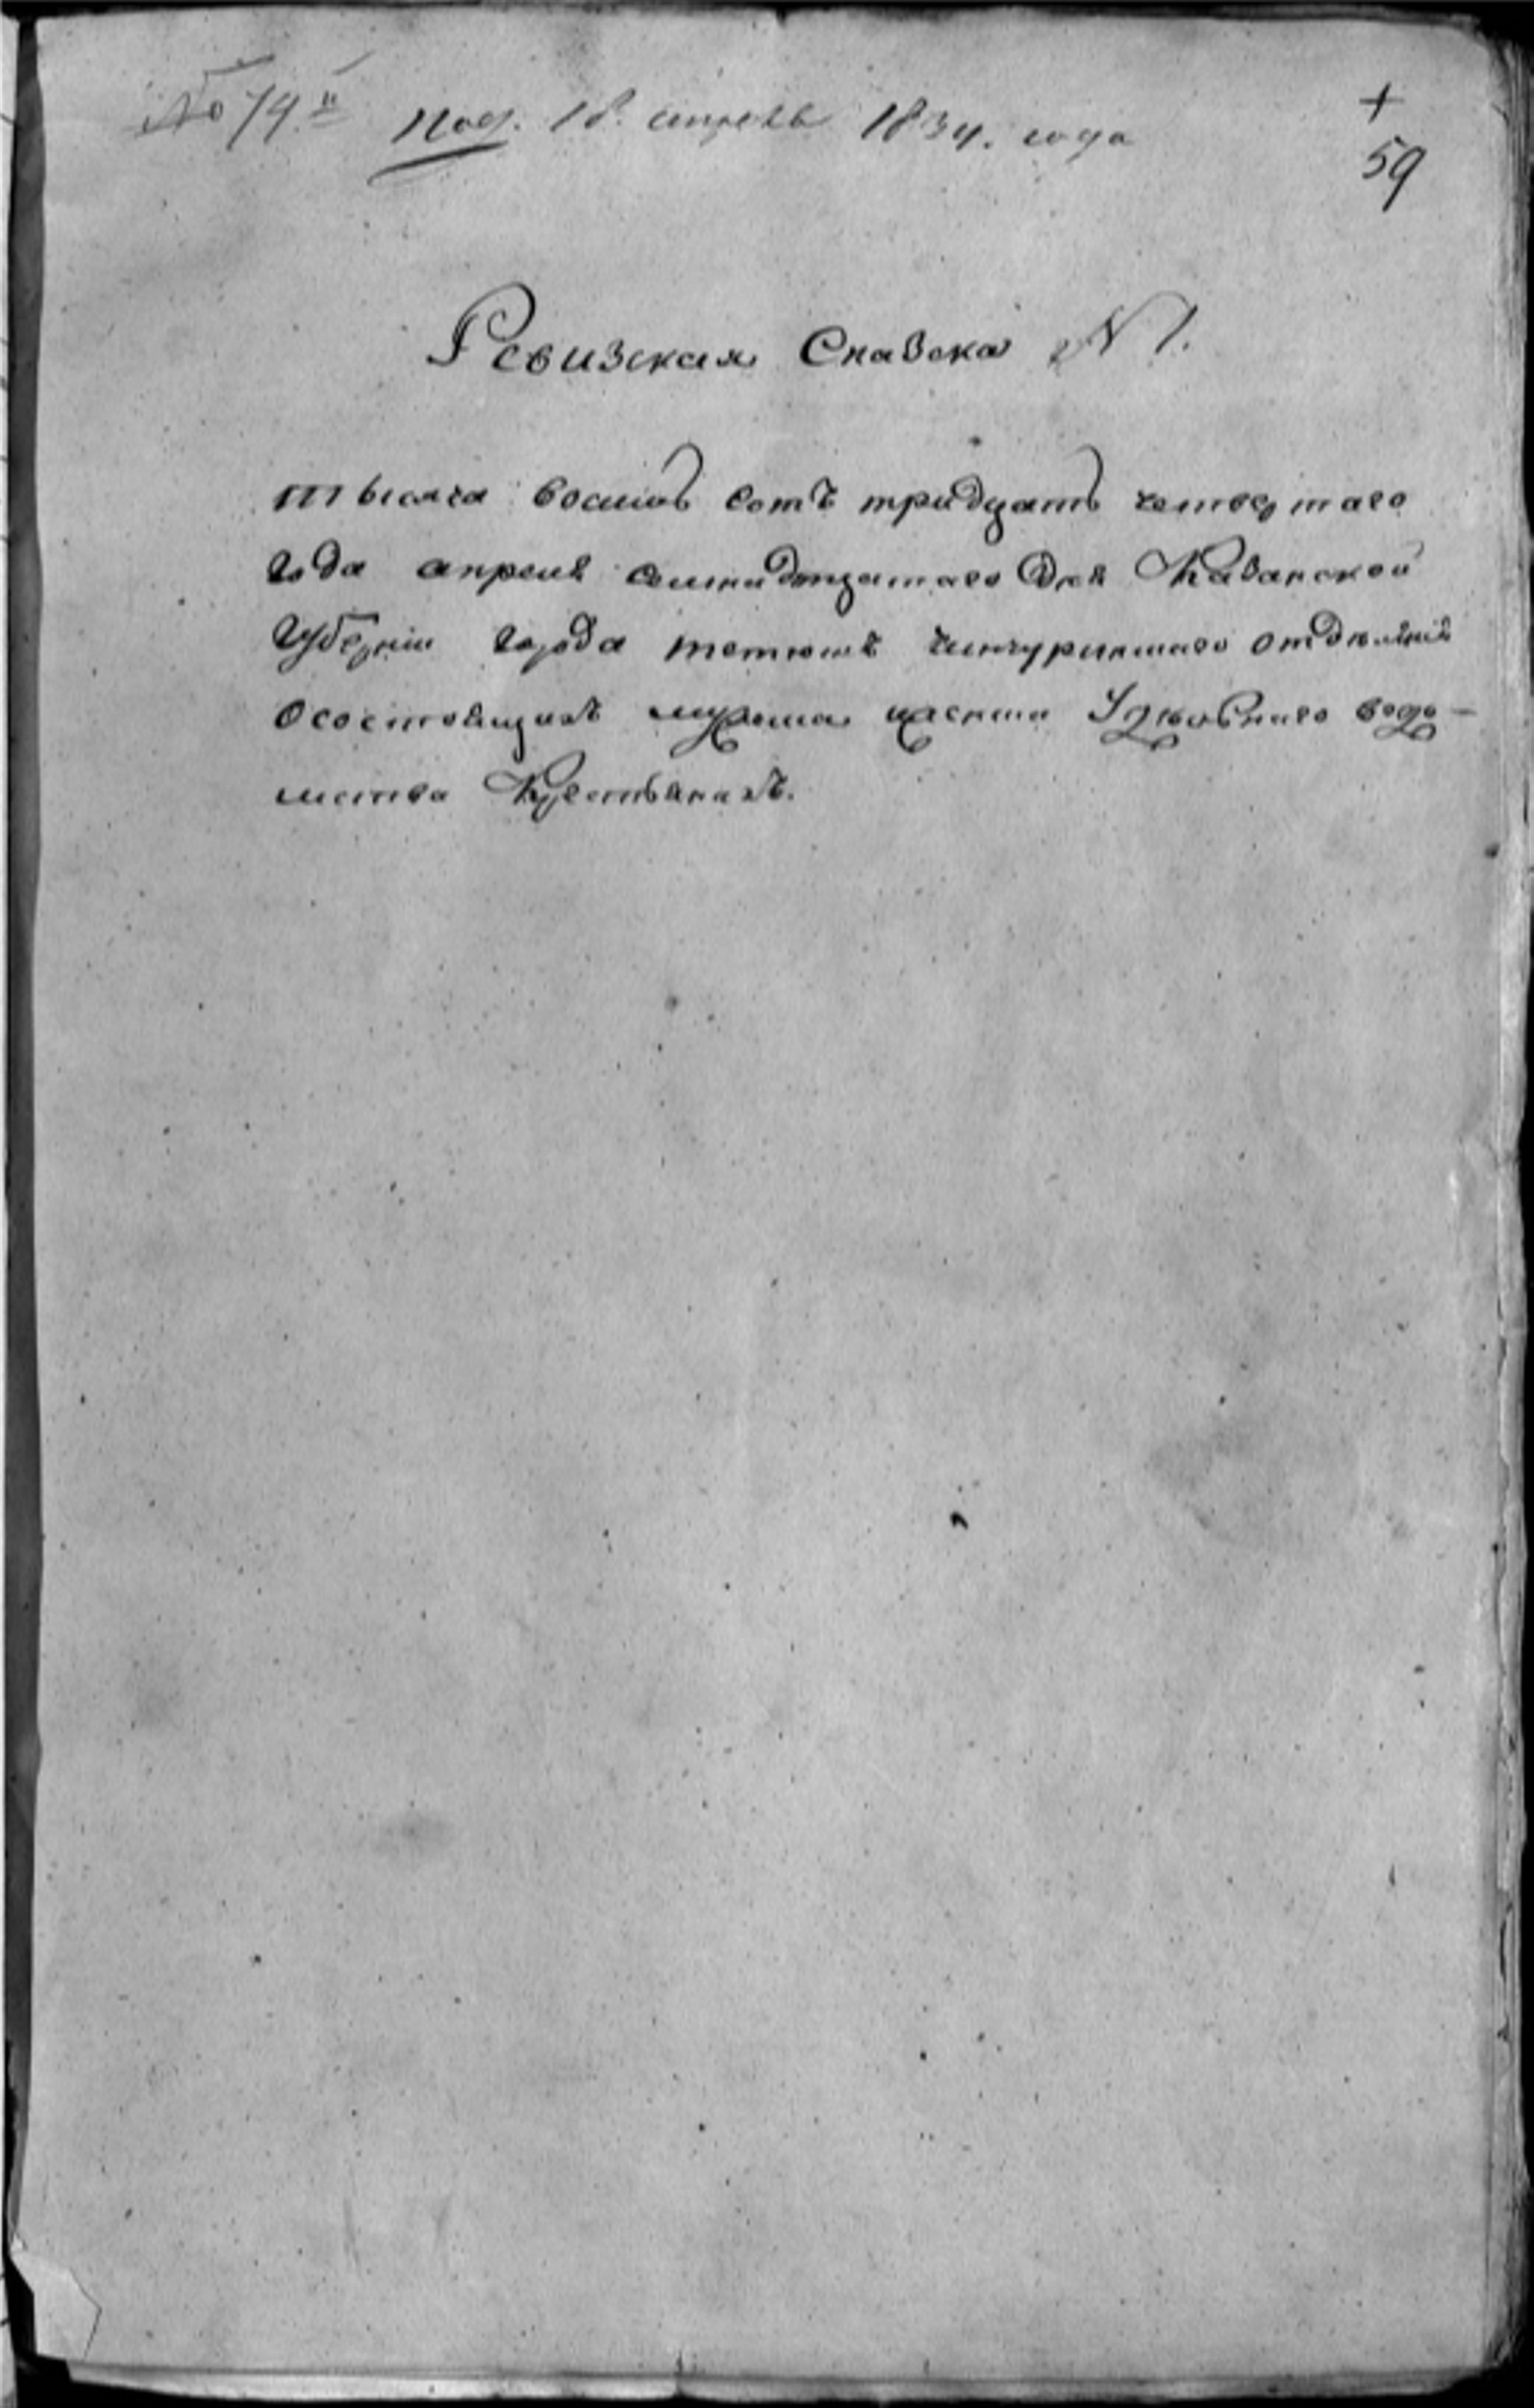 № 74.й Под. 18. апреля 1834. года
+
59
Ревизская Сказска N 1.
тысяча восемь сотъ тридцать четвертаго
Года апреля семнадцатаго дня Казанской
Губернiи города тетюшъ отделенiя
Осостоящихъ мужеска Удельнаго ведо-
мства Крестьянахъ.